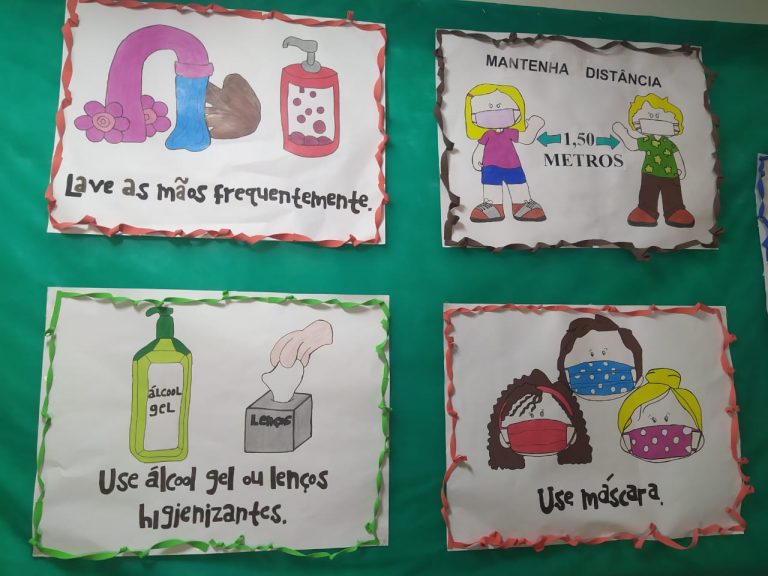 Lave as mãos frequentemente.
MANTENHA DISTÂNCIA
1,50
METROS
ÁLCOOL
gEL
LENÇOS
Use álcool gel ou lenços
higienizantes.
Use máscara.